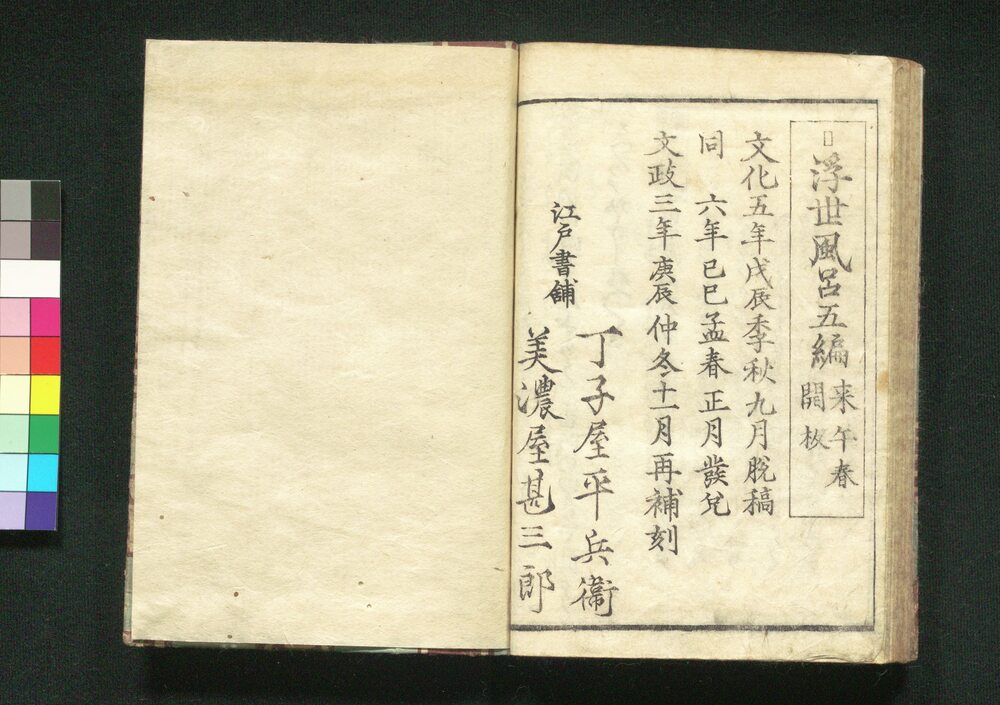 浮世風呂五編 来午春開板
文化五年戊辰季秋九月脱稿
同 六年己巳孟春正月發兌
文政三年庚辰仲冬十一月再補刻
江戸書舗
丁子屋平兵衛
美濃屋甚三郎